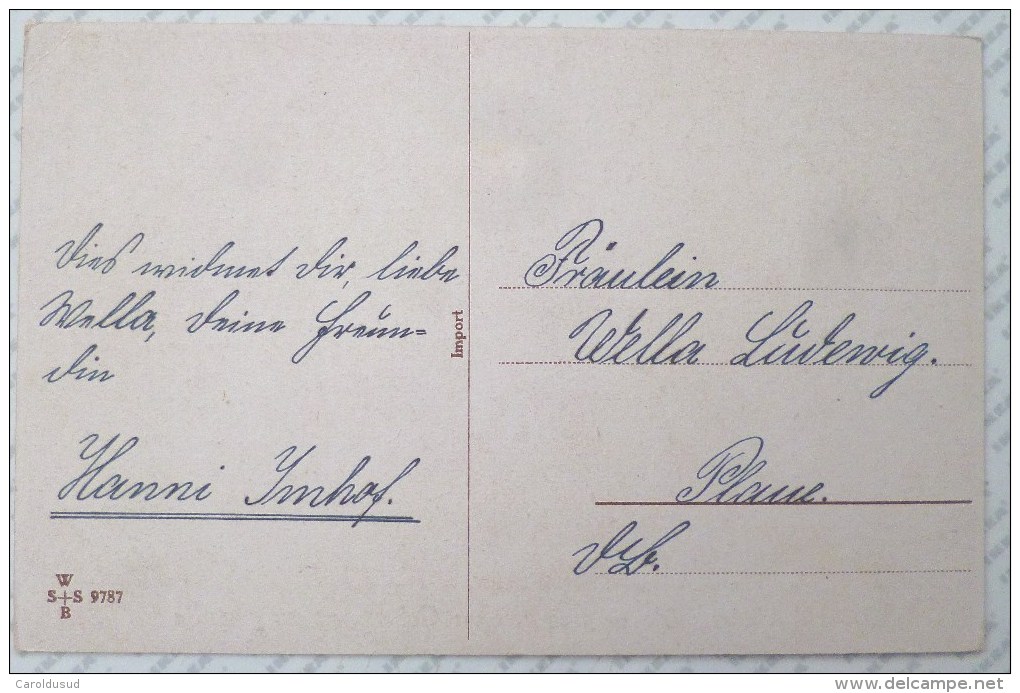 Dies widmet Dir, liebe
Wella, Deine Freun=
din
Hanni Imhof.
W
S+S 9787
B
Import
Fräulein
Wella Ludewig.
Plaue.
Caroldusud
www.delcampe.net